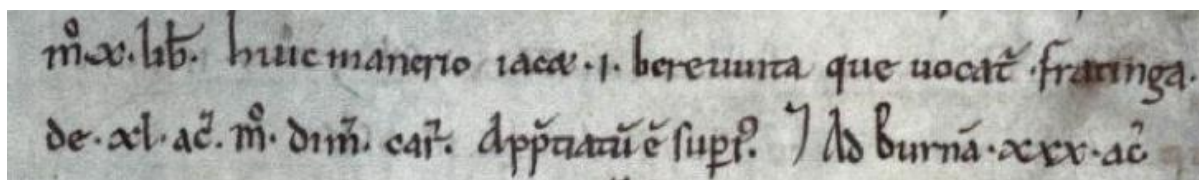 m̊·x·lib̄· huic manerio iacæ·i·bereuuita que uocat᷑·fratinga·
de·xl·ac᷑·m̊·dim᷑·car᷑· App̄tiatū ē sup᷑i᷒· ⁊ Ad burnā·xxx·ac᷑